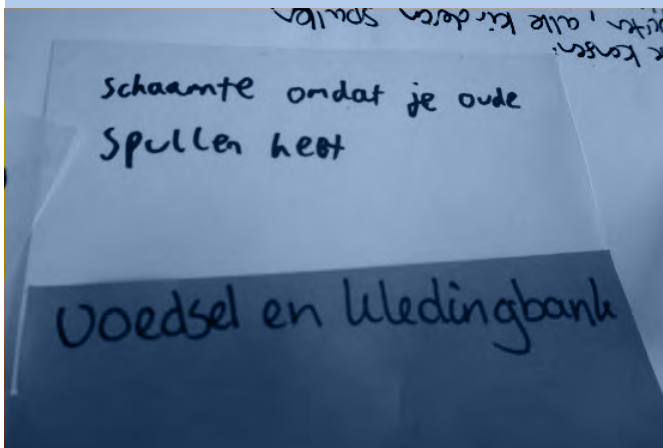 alle kinderen spullen
schaamte omdat je oude
spullen hebt
voedsel en kledingbank